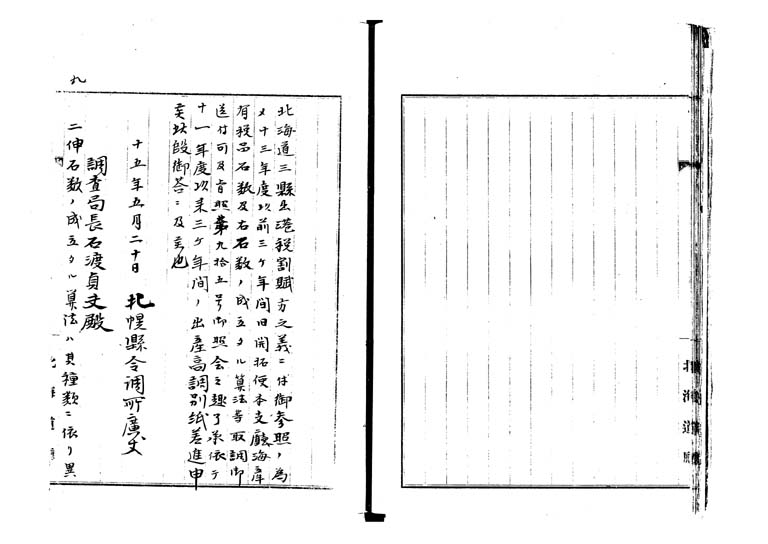 北海道三縣出港税割賦方之義ニ付御参照ノ為
メ十三年度以前三ケ年間旧開拓使本支廳海産
有税品石数及右石数ノ成立タル算法等取調御
送付可及旨照第九拾五号御照会之趣了承依テ
十一年度以来三ケ年間ノ出産高調別紙差進申
候此段御答ニ及候也
十五年五月二十日 札幌縣令調所廣丈
調査局長石渡貞丈殿
二伸石数ノ成立タル算法ハ其種類ニ依リ異
九
北海道